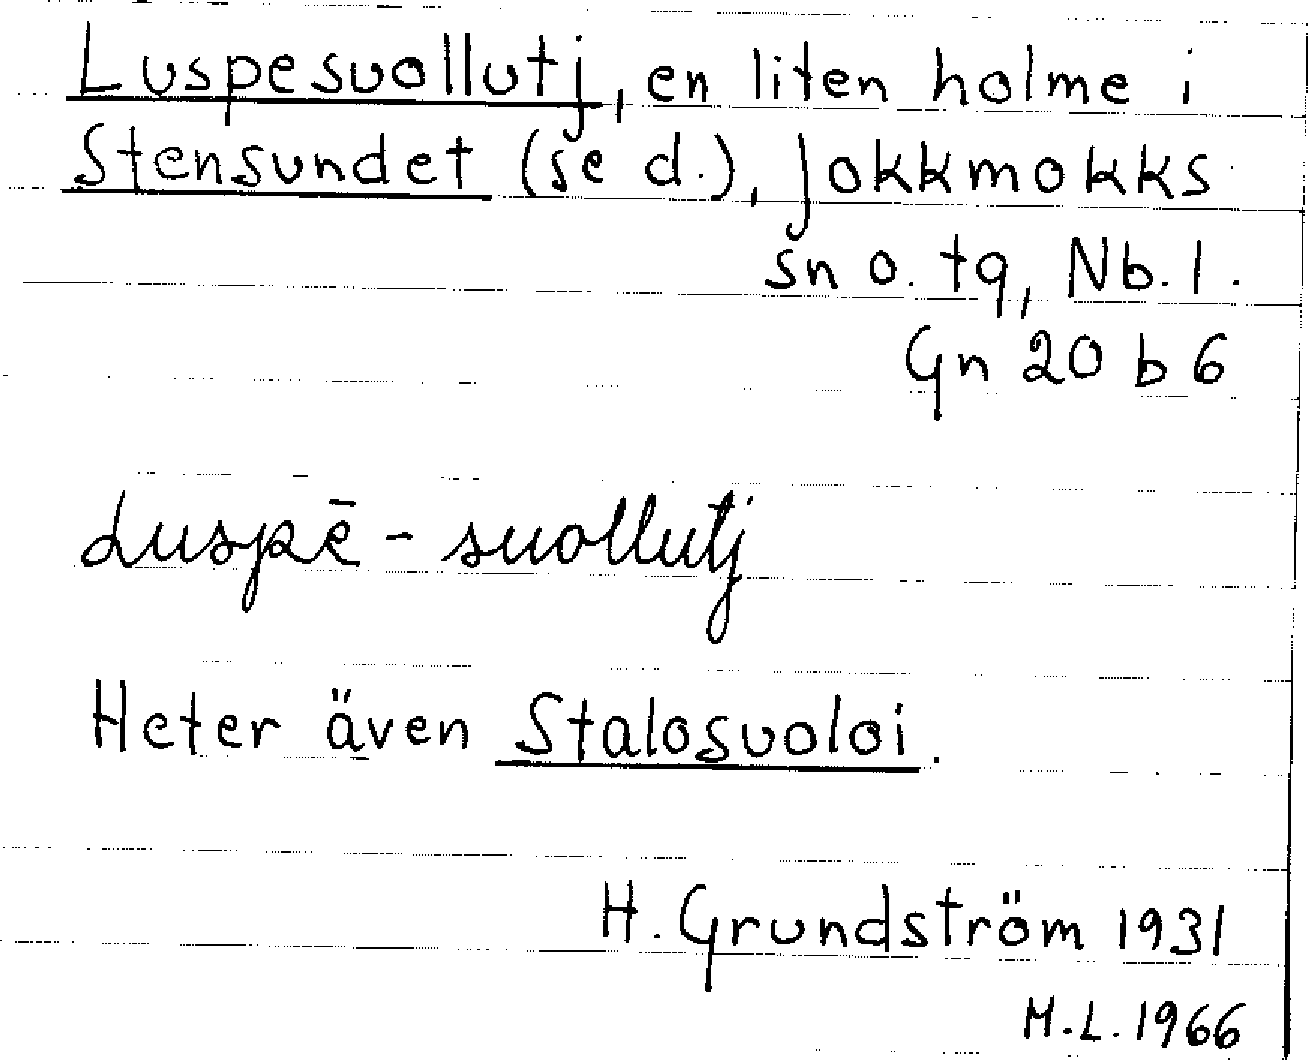 Luspesuollutj, en liten holme i
Stensundet (se d.), Jokkmokks
sn o. tg, Nb. l.
Gn 20 b 6
Luspē - suollutj
Heter även Stalosuoloi.
H. Grundström 1931
M.L. 1966